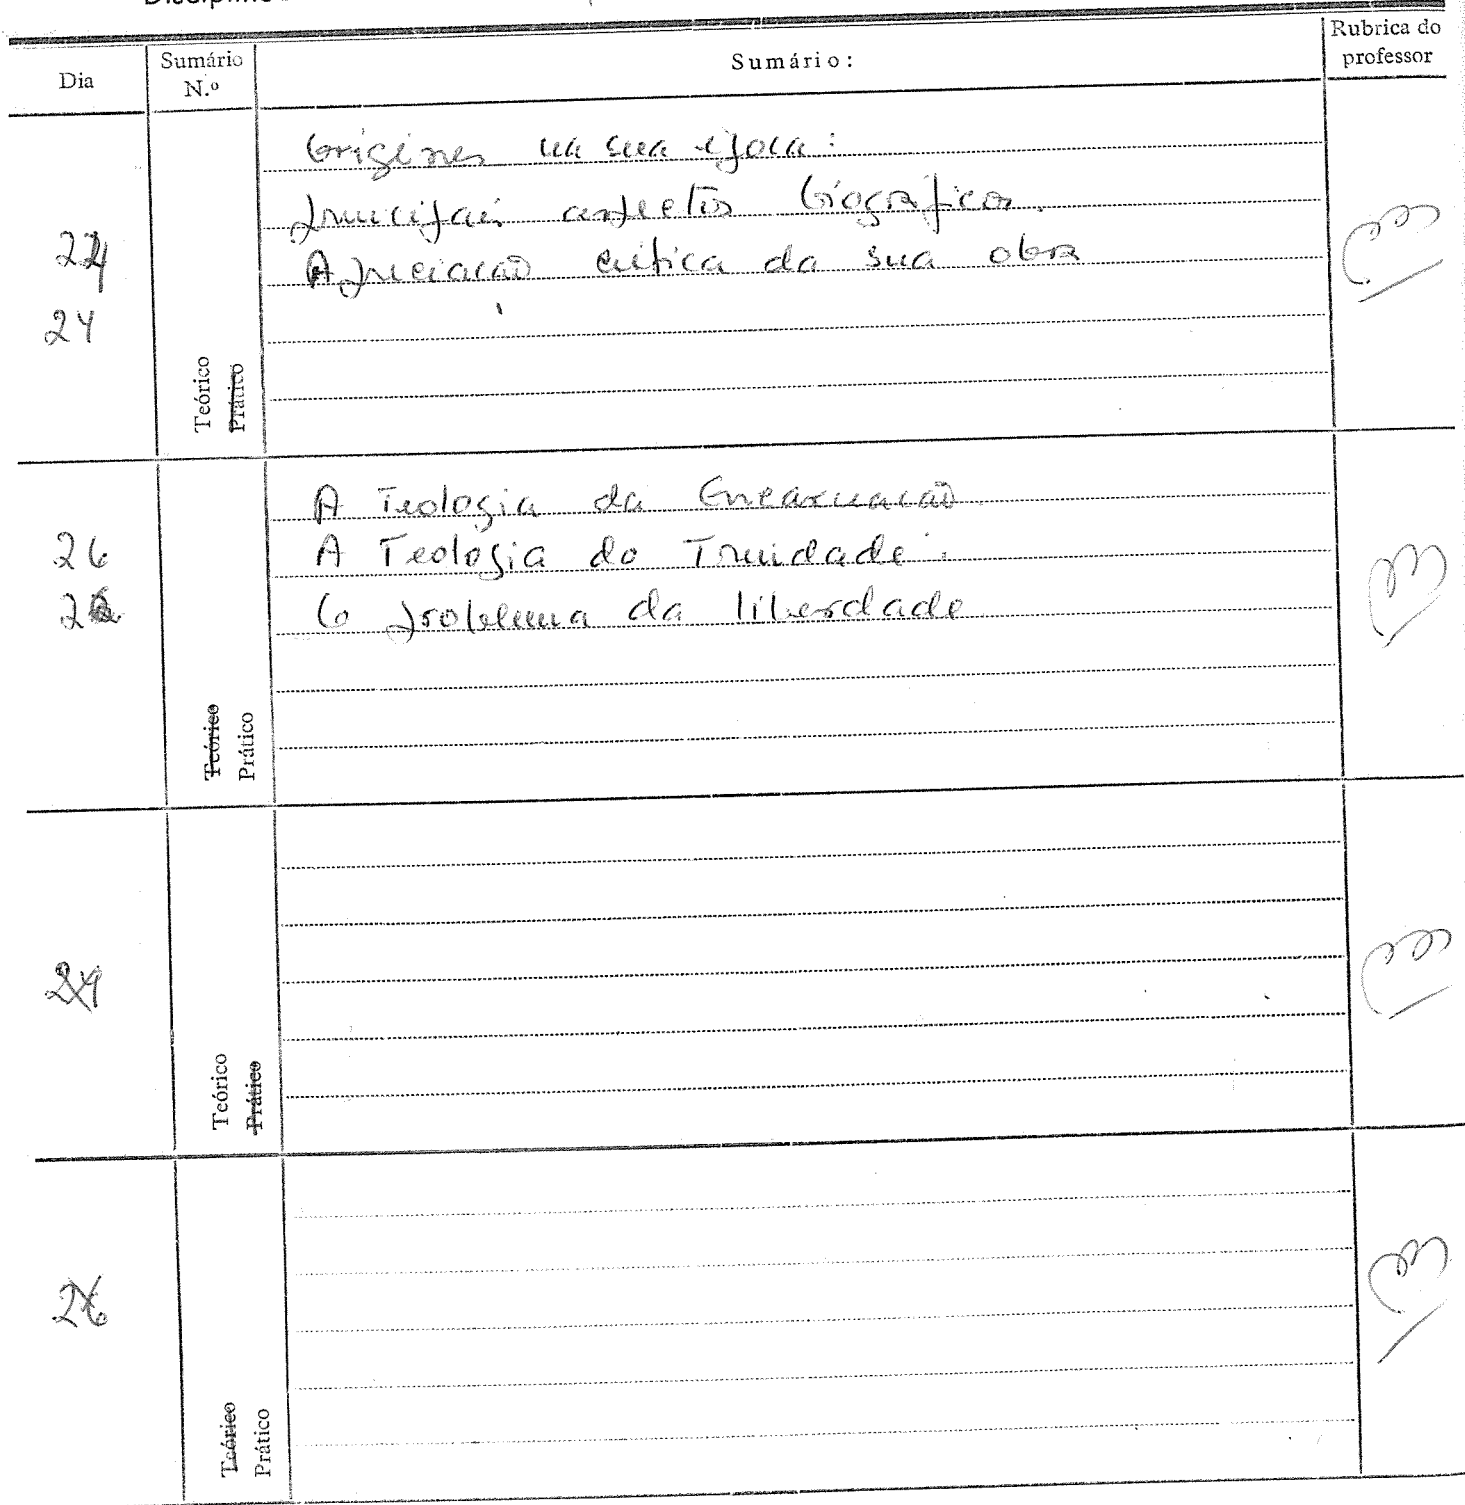 Dia
Sumário N.º
Sumário:
Rubrica do professor
Orígenes na sua época:
principais aspectos biográficos.
Apreciação crítica da sua obra
24
Teórico
Prático
A Teologia da Encarnação.
26
A Teologia do Trindade.
O problema da liberdade
Teórico
Prático
Teórico
Prático
Teórico
Prático